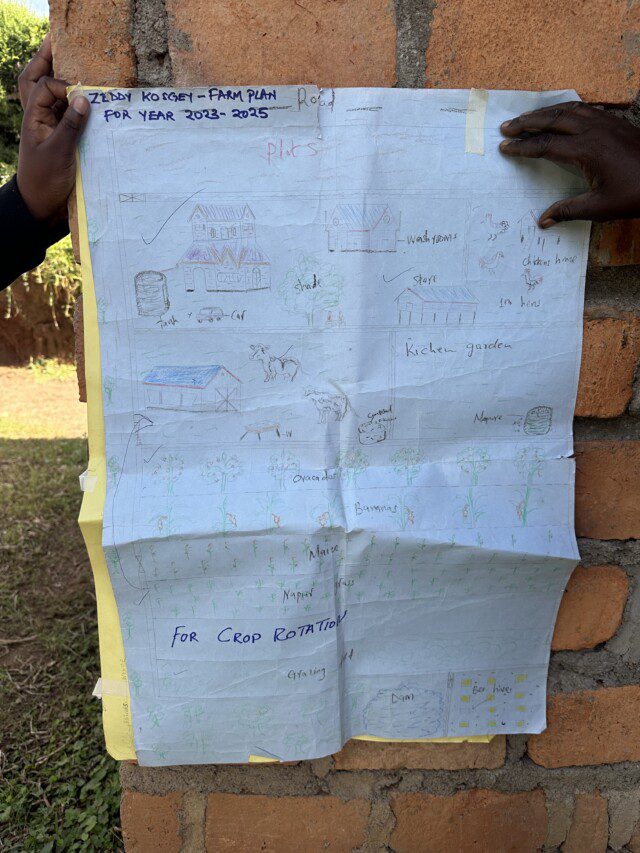 ZEDDY KOSGEY - FARM PLAN
FOR YEAR 2023-2025
Road
Plots
Washrooms
Chickens house
Shade
Store
100 hens
Tank
Car
Kichen garden
Manure
Ovacados
Bananas
Maize
Napier grass
FOR CROP ROTATION
Grazing
Dam
Bee hives